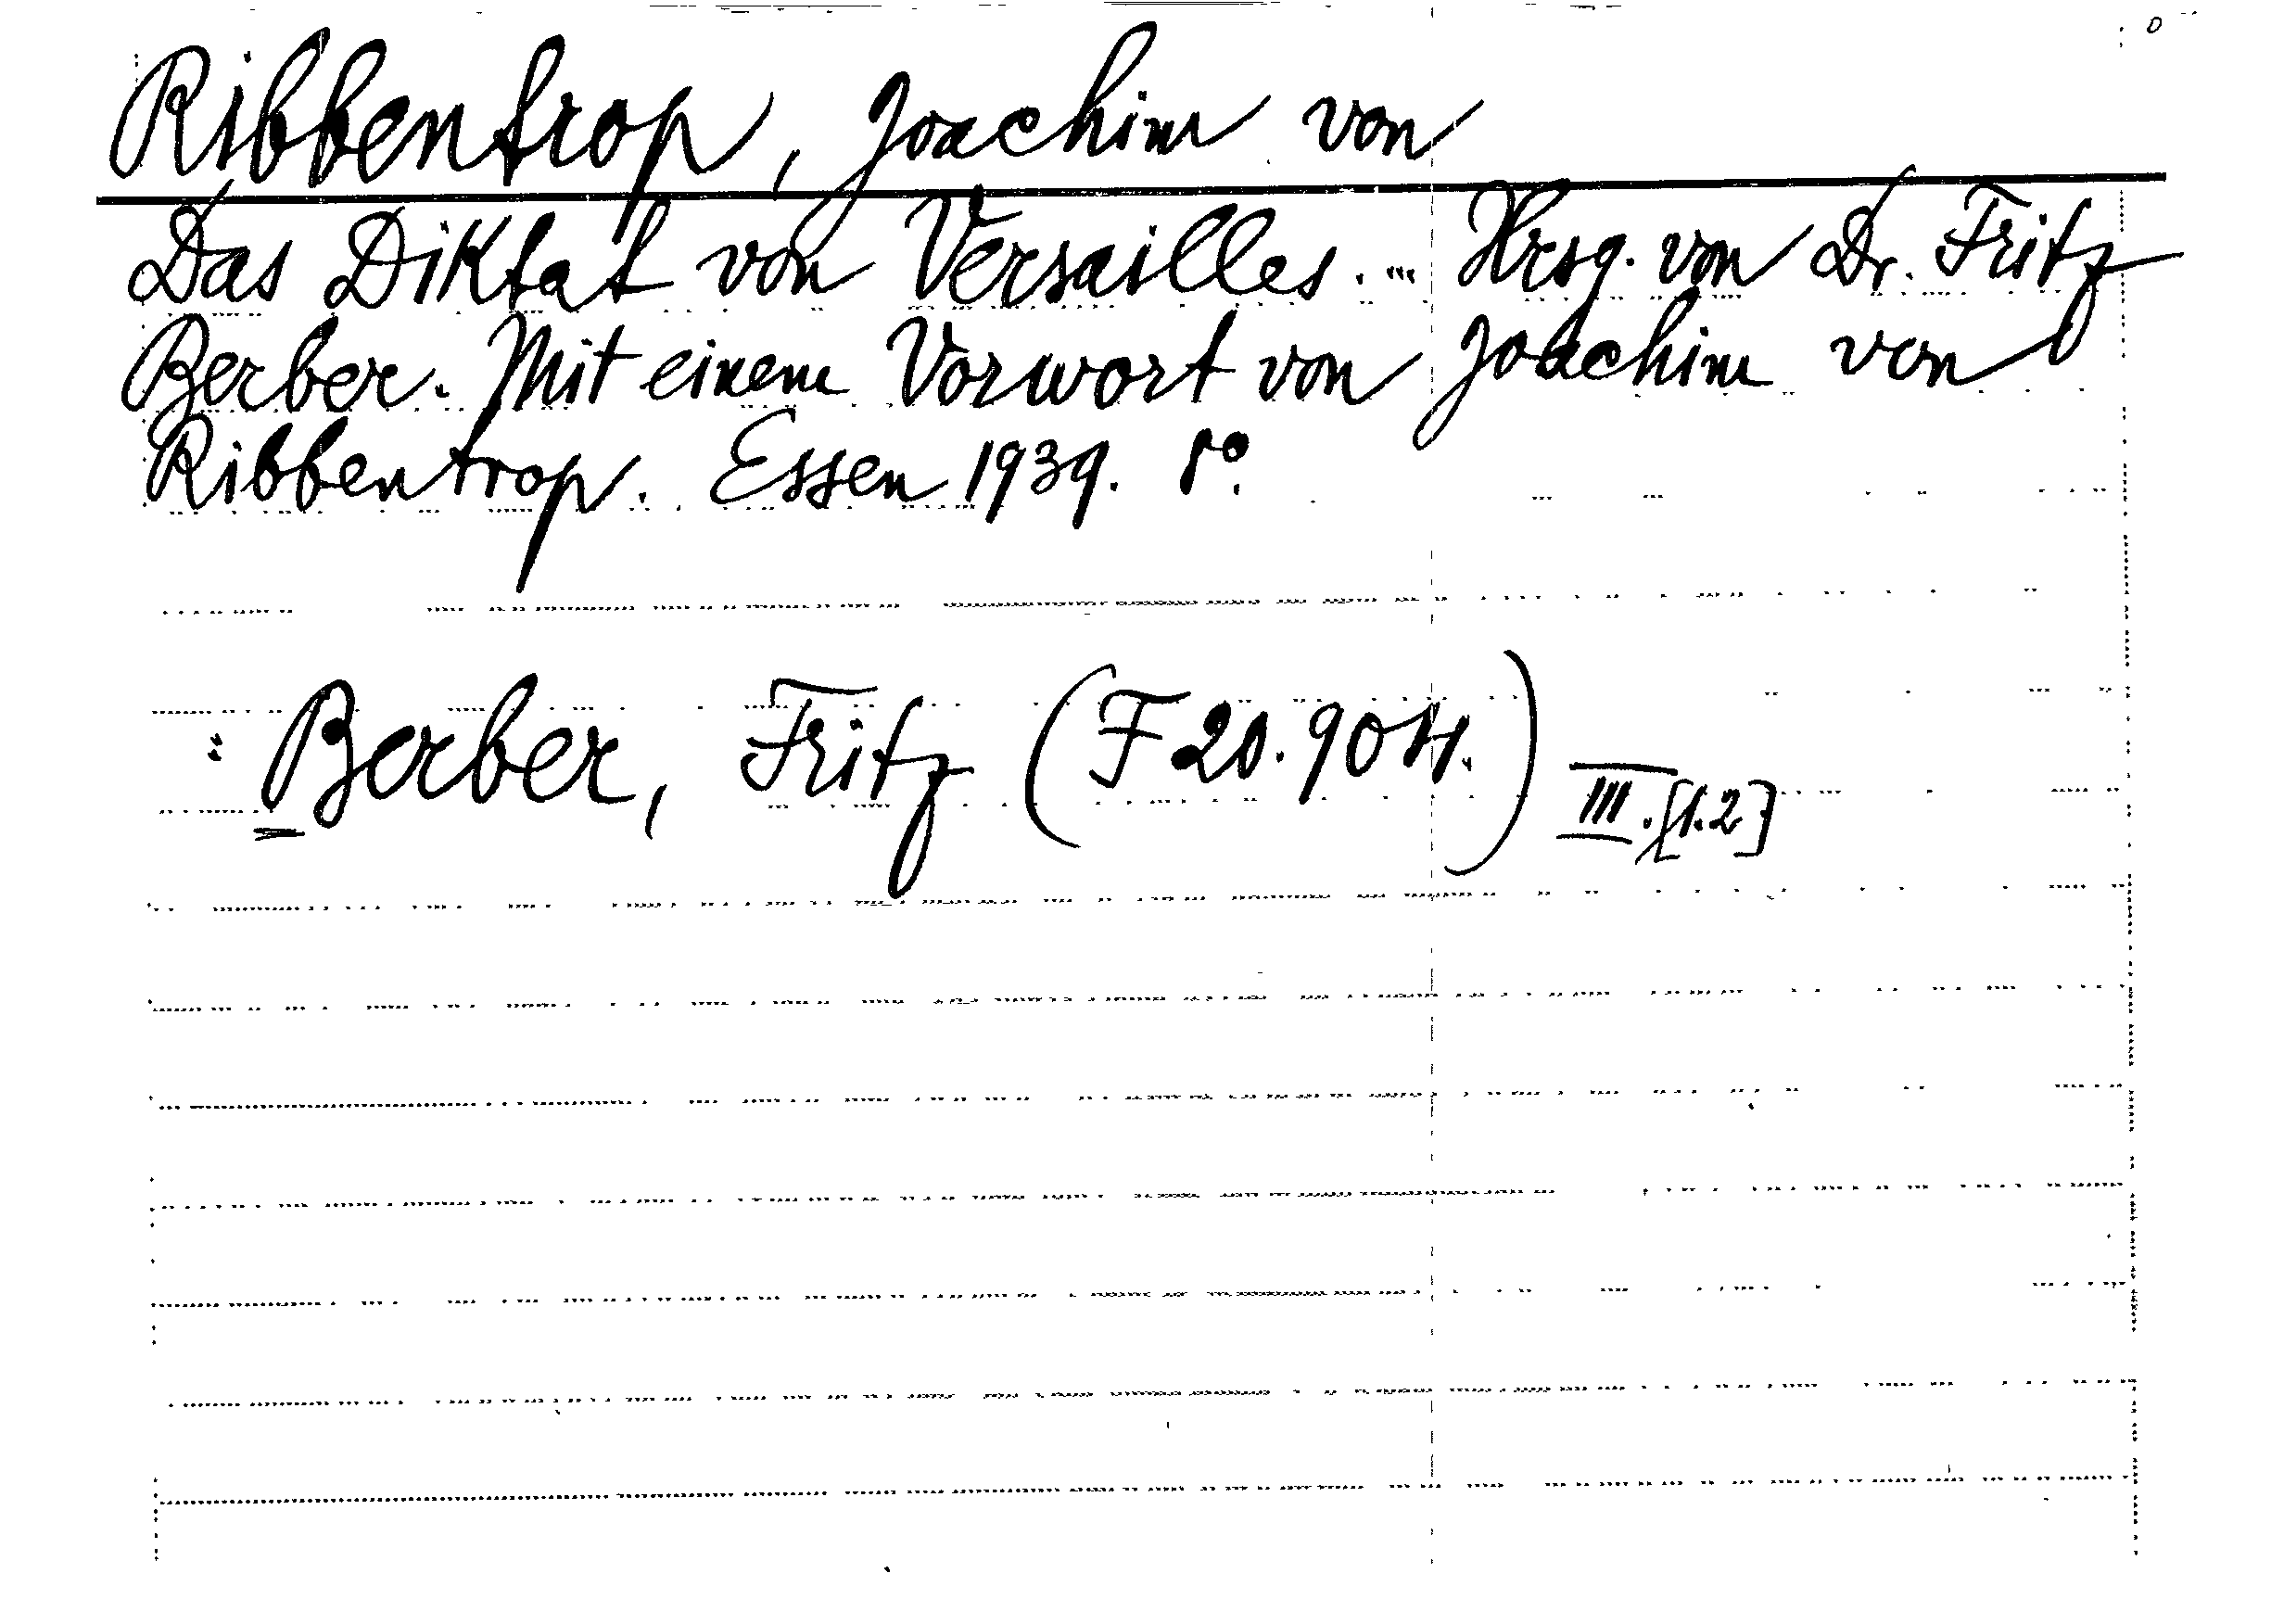 Ribbentrop, Joachim von
Das Diktat von Versailles. ... Hrsg. von Dr. Fritz
Berber. Mit einem Vorwort von Joachim von
Ribbentrop. Essen 1939. 8°.
: Berber, Fritz (F 20.904.) III.[1.2]